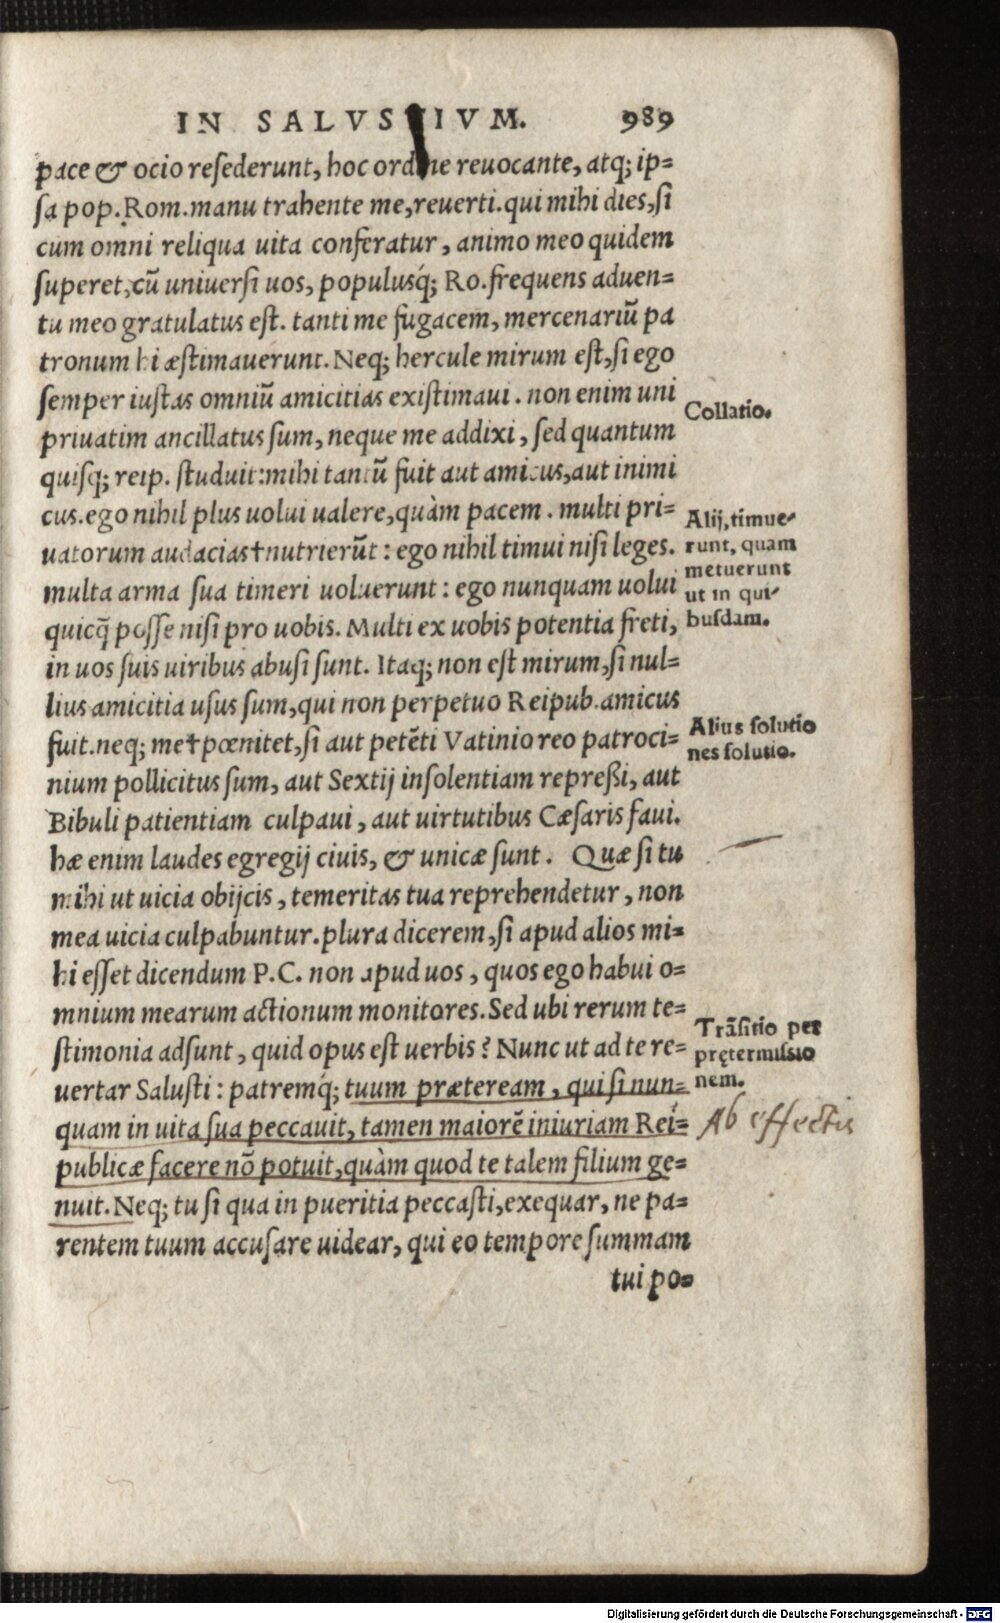 IN SALVSTIVM. 989
pace & ocio resederunt, hoc ordine reuocante, atq; ip=
sa pop. Rom. manu trahente me, reuerti. qui mihi dies, si
cum omni reliqua uita conferatur, animo meo quidem
superet, cũ uniuersi uos, populusq́; Ro. frequens aduen=
tu meo gratulatus est. tanti me fugacem, mercenariũ pa
tronum hi æstimauerunt. Neq; hercule mirum est, si ego
semper iustas omniũ amicitias existimaui. non enim uni
Collatio.
priuatim ancillatus sum, neque me addixi, sed quantum
quisq; reip. studuit: mihi tantũ fuit aut amicus, aut inimi
cus. ego nihil plus uolui ualere, quàm pacem. multi pri=
Alij, timue-
uatorum audacias † nutrierũt: ego nihil timui nisi leges.
runt, quam
metuerunt
multa arma sua timeri uoluerunt: ego nunquam uolui
ut in qui-
quicq̃ posse nisi pro uobis. Multi ex uobis potentia freti,
busdam.
in uos suis uiribus abusi sunt. Itaq; non est mirum, si nul=
lius amicitia usus sum, qui non perpetuo Reipub. amicus
Alius solutio
fuit. neq; me † pœnitet, si aut petẽti Vatinio reo patroci=
nes solutio.
nium pollicitus sum, aut Sextij insolentiam repreßi, aut
Bibuli patientiam culpaui, aut uirtutibus Cæsaris faui.
hæ enim laudes egregij ciuis, & unicæ sunt. Quæ si tu
mihi ut uicia obijcis, temeritas tua reprehendetur, non
mea uicia culpabuntur. plura dicerem, si apud alios mi=
hi esset dicendum P.C. non apud uos, quos ego habui o=
mnium mearum actionum monitores. Sed ubi rerum te=
Trãsitio per
stimonia adsunt, quid opus est uerbis? Nunc ut ad te re=
prętermissio
uertar Salusti: patremq́; tuum præteream, qui si nun=
nem.
quam in uita sua peccauit, tamen maiorẽ iniuriam Rei=
Ab effectis
publicæ facere nõ potuit, quàm quod te talem filium ge=
nuit. Neq; tu si qua in pueritia peccasti, exequar, ne pa=
rentem tuum accusare uidear, qui eo tempore summam
tui po=
Digitalisierung gefördert durch die Deutsche Forschungsgemeinschaft - DFG